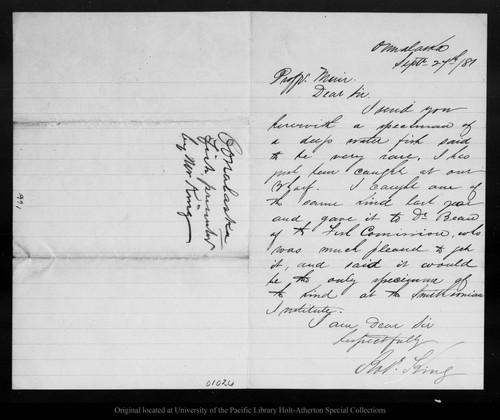 Ounalaska
Septr 27th/81
Profr. Muir
Dear Sir
I send you
herewith a specimen of
a deep water fish said
to be very rare, I has
just been caught at our
Wharf. I caught one of
the same kind last year
and gave it to Dr Bean
of the Fish Comission, who
was much pleased to get
it, and said it would
be the only specimen of
the kind at the Smithsonian
Institute.
I am Dear Sir
Respectfully
Robt. King
Oonalaska
Fish presented
by Mr King
1881
01024
Original located at University of the Pacific Library Holt-Atherton Special Collections